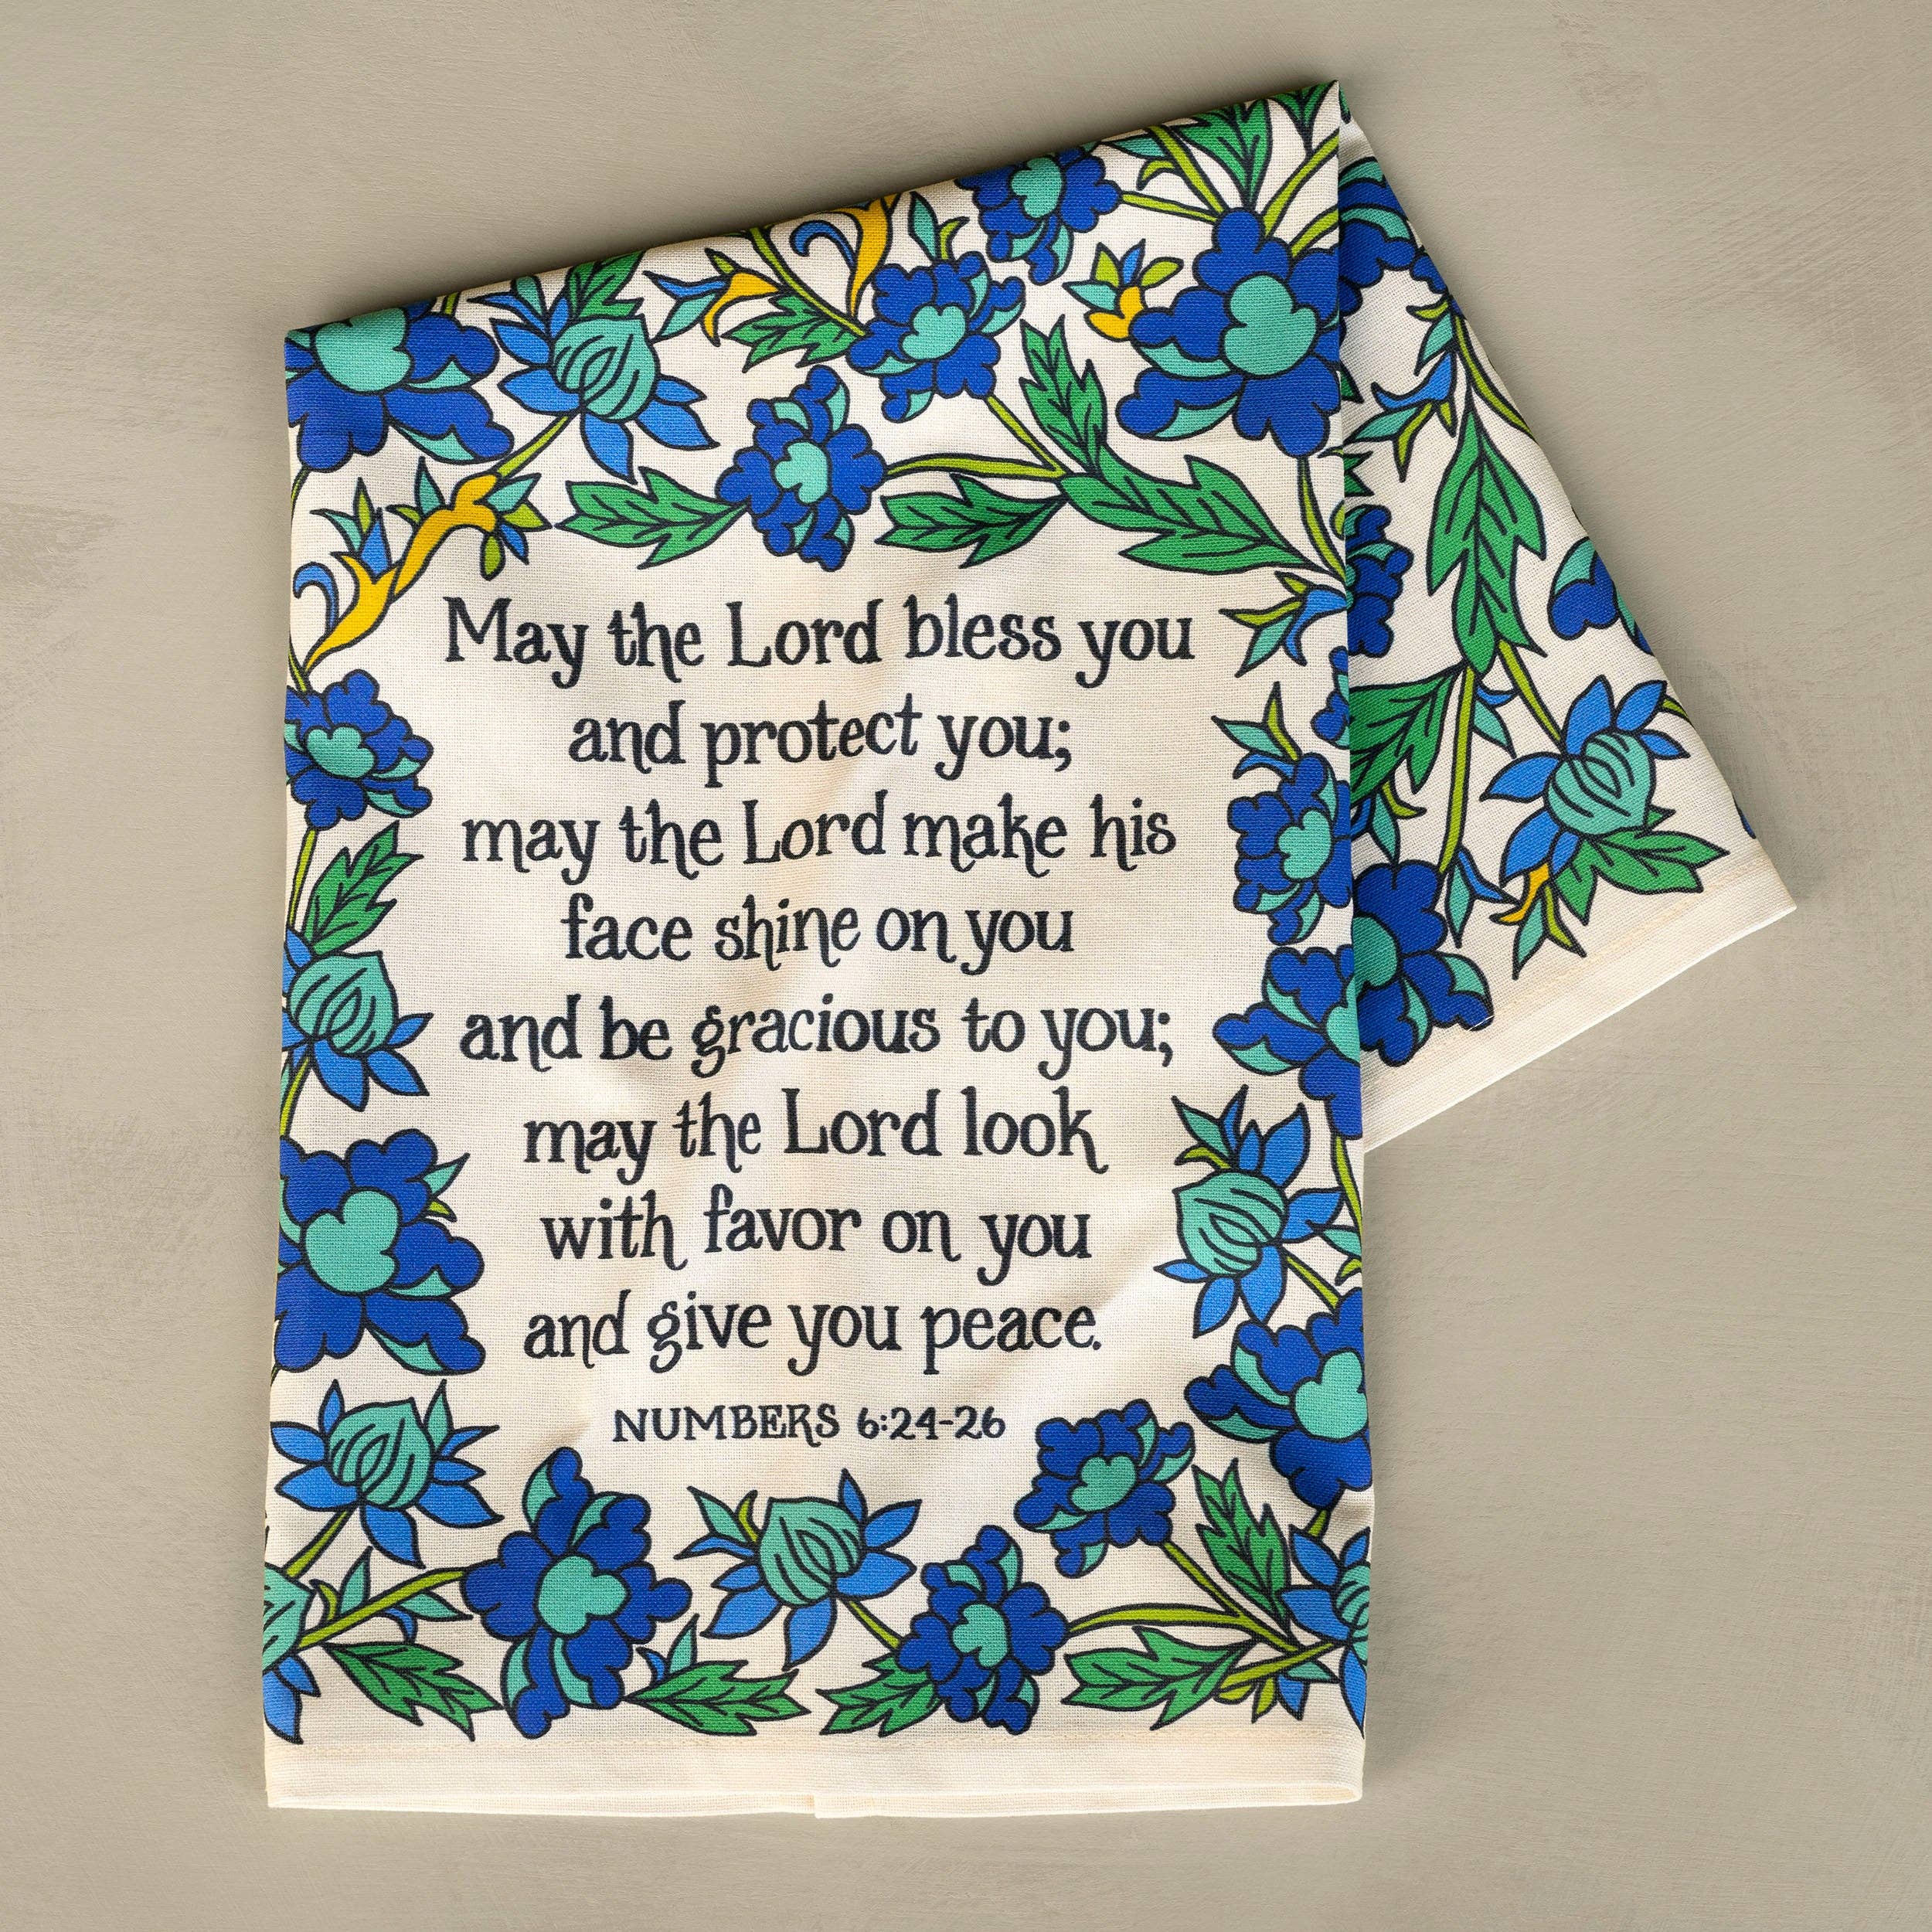 May the Lord bless you
and protect you;
may the Lord make his
face shine on you
and be gracious to you;
may the Lord look
with favor on you
and give you peace.
NUMBERS 6:24-26